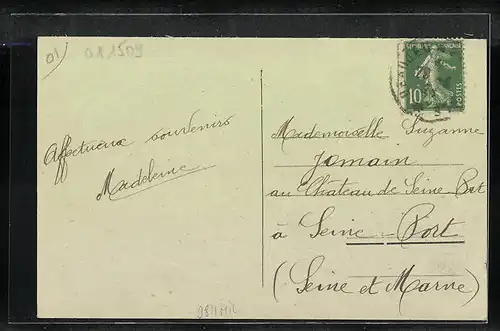 01)
Affectueux souvenirs
Madeleine
10
POSTES
Mademoiselle Suzanne
Jomain
au Château de Seine Port
à Seine-Port
(Seine et Marne)